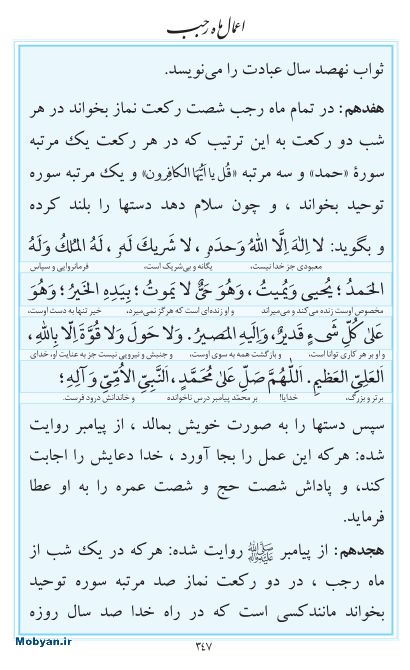 اعمال ماه رجب
ثواب نهصد سال عبادت را می‌نویسد.
هفدهم: در تمام ماه رجب شصت رکعت نماز بخواند در هر
شب دو رکعت به این ترتیب که در هر رکعت یک مرتبه
سورهٔ «حمد» و سه مرتبه «قُل یا اَیُّهَا الکافِرون» و یک مرتبه سوره
توحید بخواند ، و چون سلام دهد دستها را بلند کرده
و بگوید: لا اِلٰهَ اِلَّا اللهُ وَحدَهُ ، لا شَریكَ لَهُ ، لَهُ المُلكُ وَلَهُ
معبودی جز خدا نیست، یگانه و بی‌شریک است، فرمانروایی و سپاس
الحَمدُ ؛ یُحیی وَیُمیتُ ، وَهُوَ حَیٌّ لا یَموتُ ؛ بِیَدِهِ الخَیرُ ؛ وَهُوَ
مخصوص اوست زنده می‌کند و می‌میراند و او زنده‌ای است که هرگز نمی‌میرد، خیر تنها به دست اوست،
عَلیٰ کُلِّ شَیءٍ قَدیرٌ، وَاِلَیهِ المَصیرُ. وَلا حَولَ وَلا قُوَّةَ اِلّا بِاللهِ،
و او بر هر کاری توانا است، و بازگشت همه به سوی اوست، و جنبش و نیرویی نیست جز به عنایت او، خدای
العَلِیِّ العَظیمِ. اَللّٰهُمَّ صَلِّ عَلیٰ مُحَمَّدٍ، النَّبِیِّ الاُمِّیِّ وَ آلِهِ؛
برتر و بزرگ، خدایا! بر محمّد پیامبر درس ناخوانده و خاندانش درود فرست.
سپس دستها را به صورت خویش بمالد ، از پیامبر روایت
شده: هرکه این عمل را بجا آورد ، خدا دعایش را اجابت
کند، و پاداش شصت حج و شصت عمره را به او عطا
فرماید.
هجدهم: از پیامبر ﷺ روایت شده: هرکه در یک شب از
ماه رجب ، در دو رکعت نماز صد مرتبه سوره توحید
بخواند مانندکسی است که در راه خدا صد سال روزه
۳۴۷
Mobyan.ir